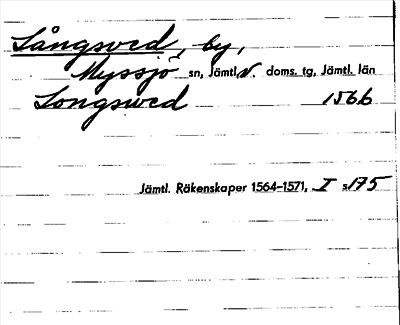 Långsved, by,
Myssjö sn, Jämtl. V. doms. tg, Jämtl. län
Longsved 1566
Jämtl. Räkenskaper 1564-1571, I s 175